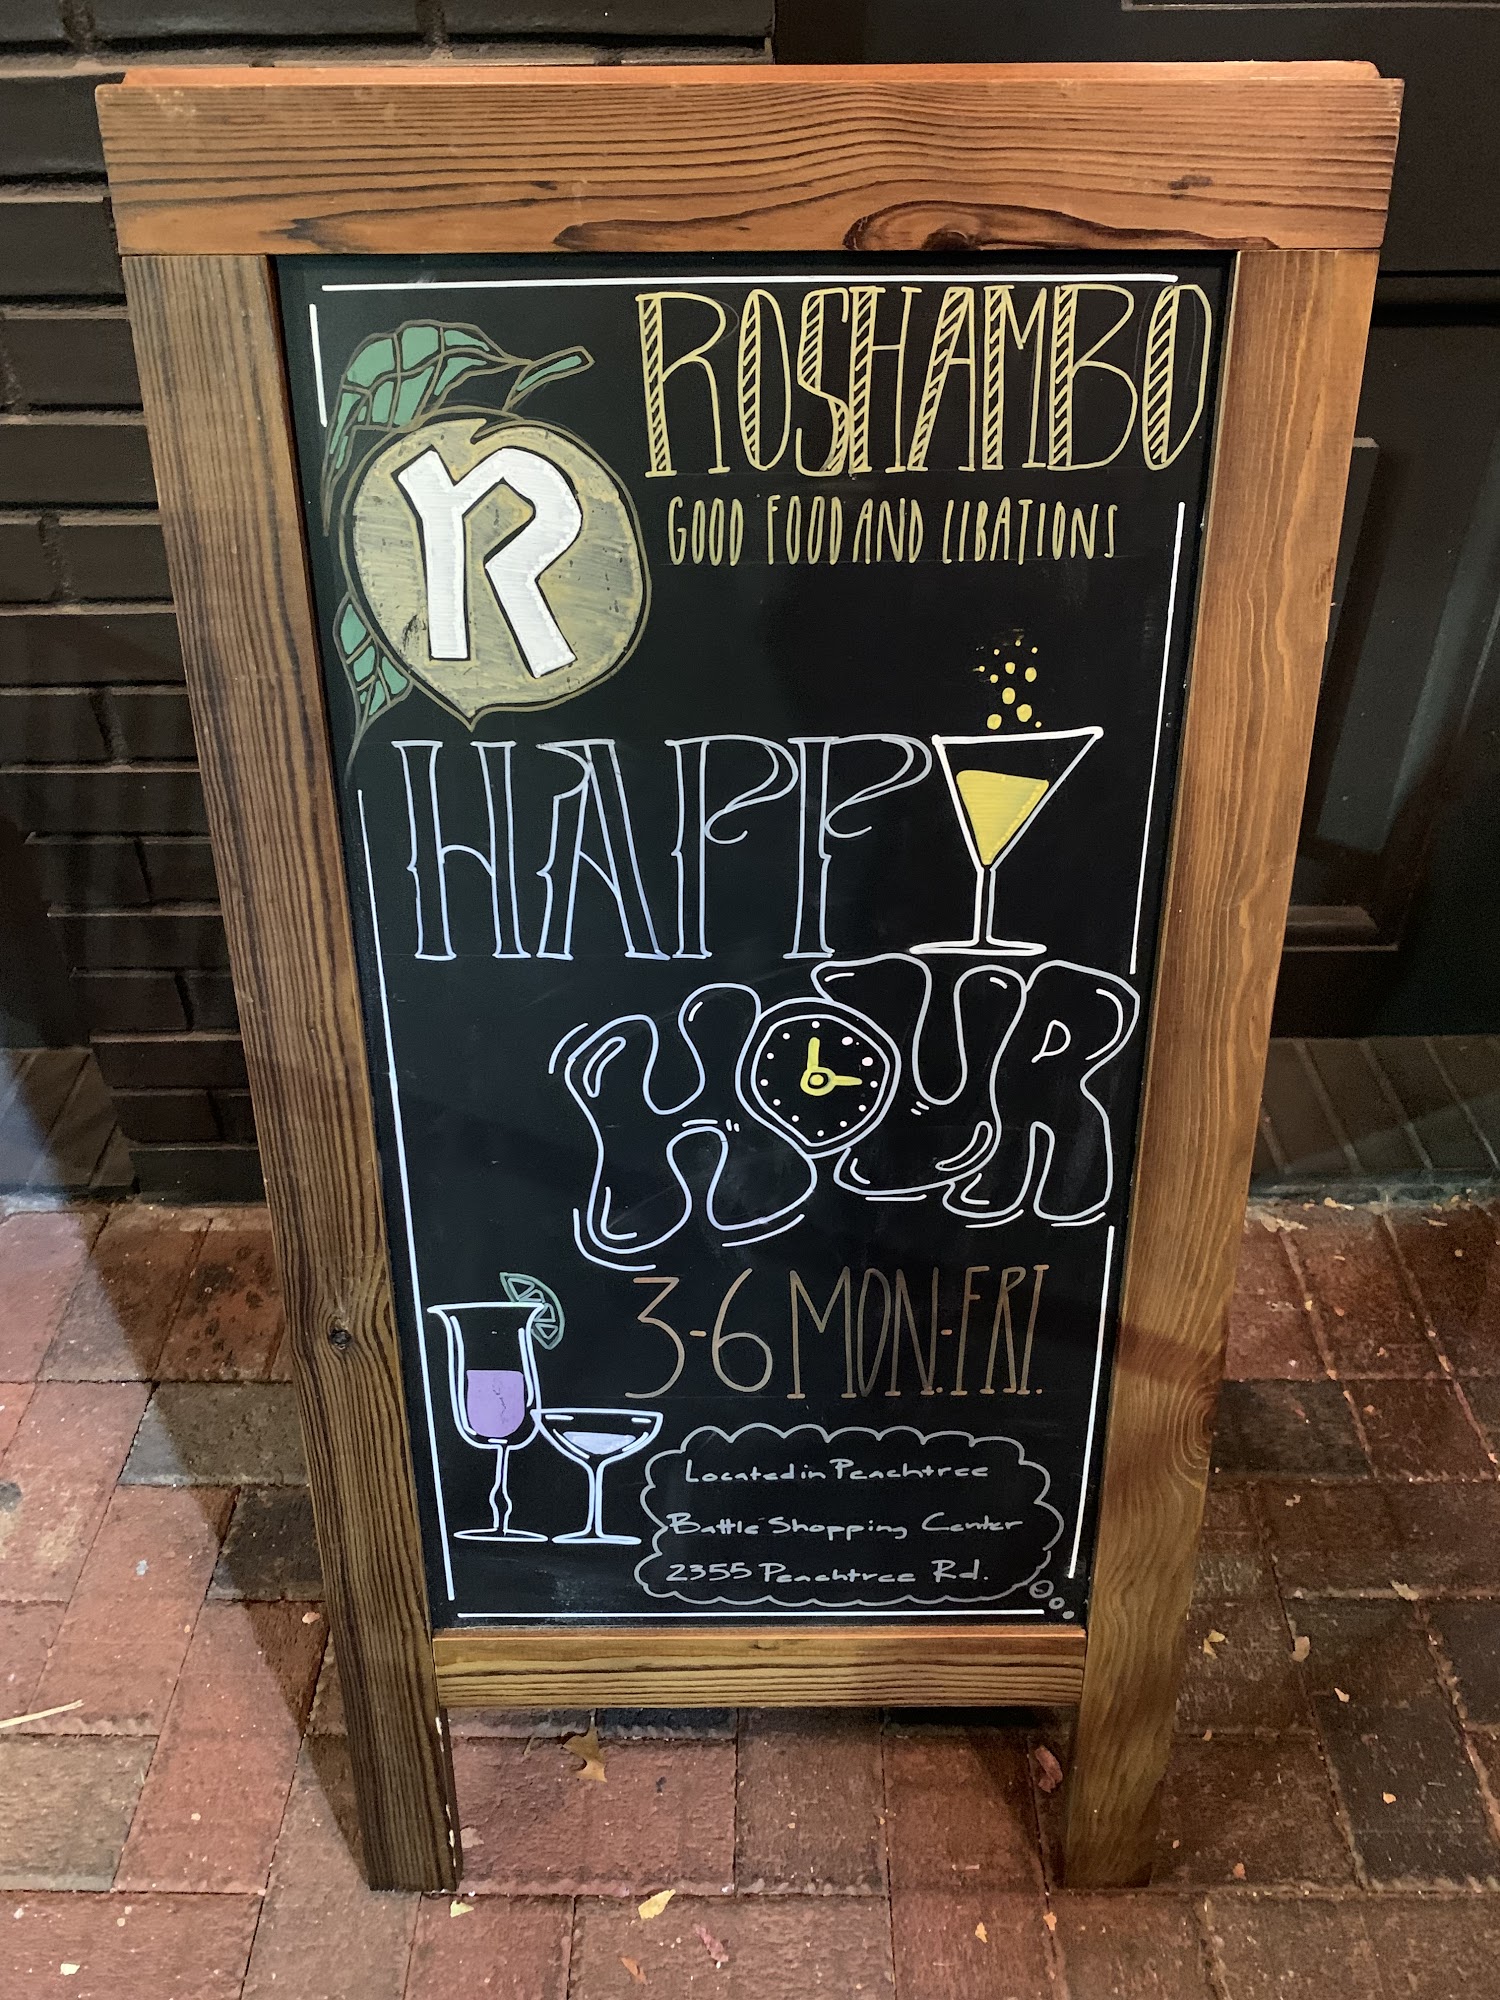 ROSHAMBO
GOOD FOOD AND LIBATIONS
R
HAPPY
HOUR
3-6 MON.-FRI.
Located in Peachtree
Battle Shopping Center
2355 Peachtree Rd.